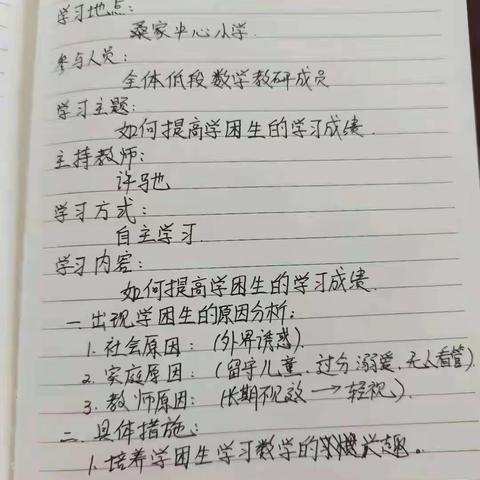 学习地点：
桑家中心小学.
参与人员：
全体低段数学教研成员
学习主题：
如何提高学困生的学习成绩.
主持教师：
许驰
学习方式：
自主学习.
学习内容：
如何提高学困生的学习成绩.
一. 出现学困生的原因分析：
1. 社会原因：（外界诱惑）.
2. 家庭原因：（留守儿童、过分溺爱、无人看管）.
3. 教师原因：（长期不见效→轻视）.
二. 具体措施：
1. 培养学困生学习数学的兴趣。